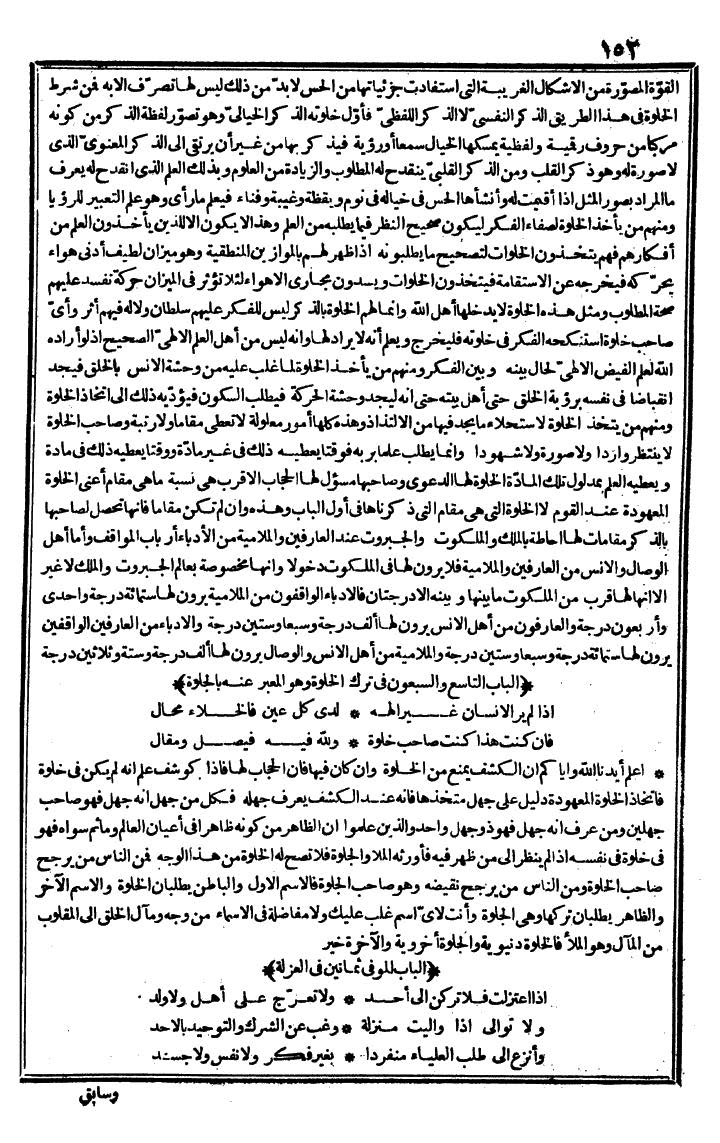 ١٥٢
القوّة المصوّرة من الاشكال الغريبة التى استفادت جزئياتها من الحس لابدّ من ذلك ليس لها تصرّف الابه فمن شرط
الخلوة فى هذا الطريق الذكر النفسىّ لا الذكر اللفظىّ فأوّل خلوته الذكر الخيالىّ وهو تصوّر لفظة الذكر من كونه
مركبا من حروف رقمية ولفظية يمسكها الخيال سمعا أو رؤية فيذكر بها من غير أن يرتقى الى الذكر المعنوىّ الذى
لا صورة له وهو ذكر القلب ومن الذكر القلبىّ ينقدح له المطلوب والزيادة من العلوم وبذلك العلم الذى انقدح له يعرف
ما المراد بصور المثل اذا أقيمت له وأنشأها الحس فى خياله فى نوم ويقظة وغيبة وفناء فيعلم ما رأى وهو علم التعبير للرؤيا
ومنهم من يأخذ الخلوة لصفاء الفكر ليكون صحيح النظر فيما يطلبه من العلم وهذا لا يكون الا للذين يأخذون العلم من
أفكارهم فهم يتخذون الخلوات لتصحيح ما يطلبونه اذا ظهر لهم بالموازين المنطقية وهو ميزان لطيف أدنى هواء
يحرّكه فيخرجه عن الاستقامة فيتخذون الخلوات ويسدون مجارى الاهواء لئلا تؤثر فى الميزان حركة تفسد عليهم
صحة المطلوب ومثل هذه الخلوة لا يدخلها أهل الله وانما لهم الخلوة بالذكر ليس للفكر عليهم سلطان ولا له فيهم أثر وأىّ
صاحب خلوة استنكحه الفكر فى خلوته فليخرج ويعلم أنه لا يراد لها وانه ليس من أهل العلم الالهىّ الصحيح اذ لو أراده
الله لعلم الفيض الالهىّ لحال بينه وبين الفكر ومنهم من يأخذ الخلوة لما غلب عليه من وحشة الانس بالخلق فيجد
انقباضا فى نفسه برؤية الخلق حتى أهل بيته حتى انه ليجد وحشة الحركة فيطلب السكون فيؤدّيه ذلك الى اتخاذ الخلوة
ومنهم من يتخذ الخلوة لاستحلاء ما يجد فيها من الالتذاذ وهذه كلها أمور معلولة لا تعطى مقاما ولا رتبة وصاحب الخلوة
لا ينتظر واردا ولا صورة ولا شهودا وانما يطلب علما بربه فوقتا يعطيه ذلك فى غير مادّة ووقتا يعطيه ذلك فى مادة
ويعطيه العلم بمدلول تلك المادّة الخلوة لها الدعوى وصاحبها مسؤل لها الحجاب الاقرب هى نسبة ما هى مقام أعنى الخلوة
المعهودة عند القوم لا الخلوة التى هى مقام التى ذكرناها فى أول الباب وهذه وان لم تكن مقاما فانها تحصل لصاحبها
بالذكر مقامات لها احاطة بالملك والملكوت والجبروت عند العارفين والملامية من الأدباء أرباب المواقف وأما أهل
الوصال والانس من العارفين والملامية فلا يرون لها فى الملكوت دخولا وانها مخصوصة بعالم الجبروت والملك لا غير
الا انها لها قرب من الملكوت ما بينها وبينه الا درجتان فالادباء الواقفون من الملامية يرون لها ستمائة درجة واحدى
وأربعون درجة والعارفون من أهل الانس يرون لها ألف درجة وسبعا وستين درجة والادباء من العارفين الواقفين
يرون لها ستمائة درجة وسبعا وستين درجة والملامية من أهل الانس والوصال يرون لها ألف درجة وستة وثلاثين درجة
﴿الباب التاسع والسبعون فى ترك الخلوة وهو المعبر عنه بالجلوة﴾
اذا لم ير الانسان غير الهه * لدى كل عين فالخلاء محال
فان كنت هذا كنت صاحب خلوة * ولله فيه فيصل ومقال
* اعلم أيدنا الله واياكم ان الكشف يمنع من الخلوة وان كان فيها فان الحجاب لها فاذا كوشف علم انه لم يكن فى خلوة
فاتخاذ الخلوة المعهودة دليل على جهل متخذها فانه عند الكشف يعرف جهله فكل من جهل انه جهل فهو صاحب
جهلين ومن عرف انه جهل فهو ذو جهل واحد والذين علموا ان الظاهر من كونه ظاهرا فى أعيان العالم وما ثم سواه فهو
فى خلوة فى نفسه اذ لم ينظر الى من ظهر فيه فأورثه الملا والجلوة فلا تصح له الخلوة من هذا الوجه فمن الناس من يرجح
صاحب الخلوة ومن الناس من يرجح نقيضه وهو صاحب الجلوة فالاسم الاول والباطن يطلبان الخلوة والاسم الآخر
والظاهر يطلبان تركها وهى الجلوة وأنت لاىّ اسم غلب عليك ولا مفاضلة فى الاسماء من وجه ومآل الخلق الى المقلوب
من المآل وهو الملأ فالخلوة دنيوية والجلوة أخروية والآخرة خير
﴿الباب الموفى ثمانين فى العزلة﴾
اذا اعتزلت فلا تركن الى أحد * ولا تعرّج على أهل ولا ولد
ولا توالى اذا واليت منزلة * وغب عن الشرك والتوحيد بالاحد
وأنزع الى طلب العلياء منفردا * بغير فكر ولا نفس ولا جسد
وسابق